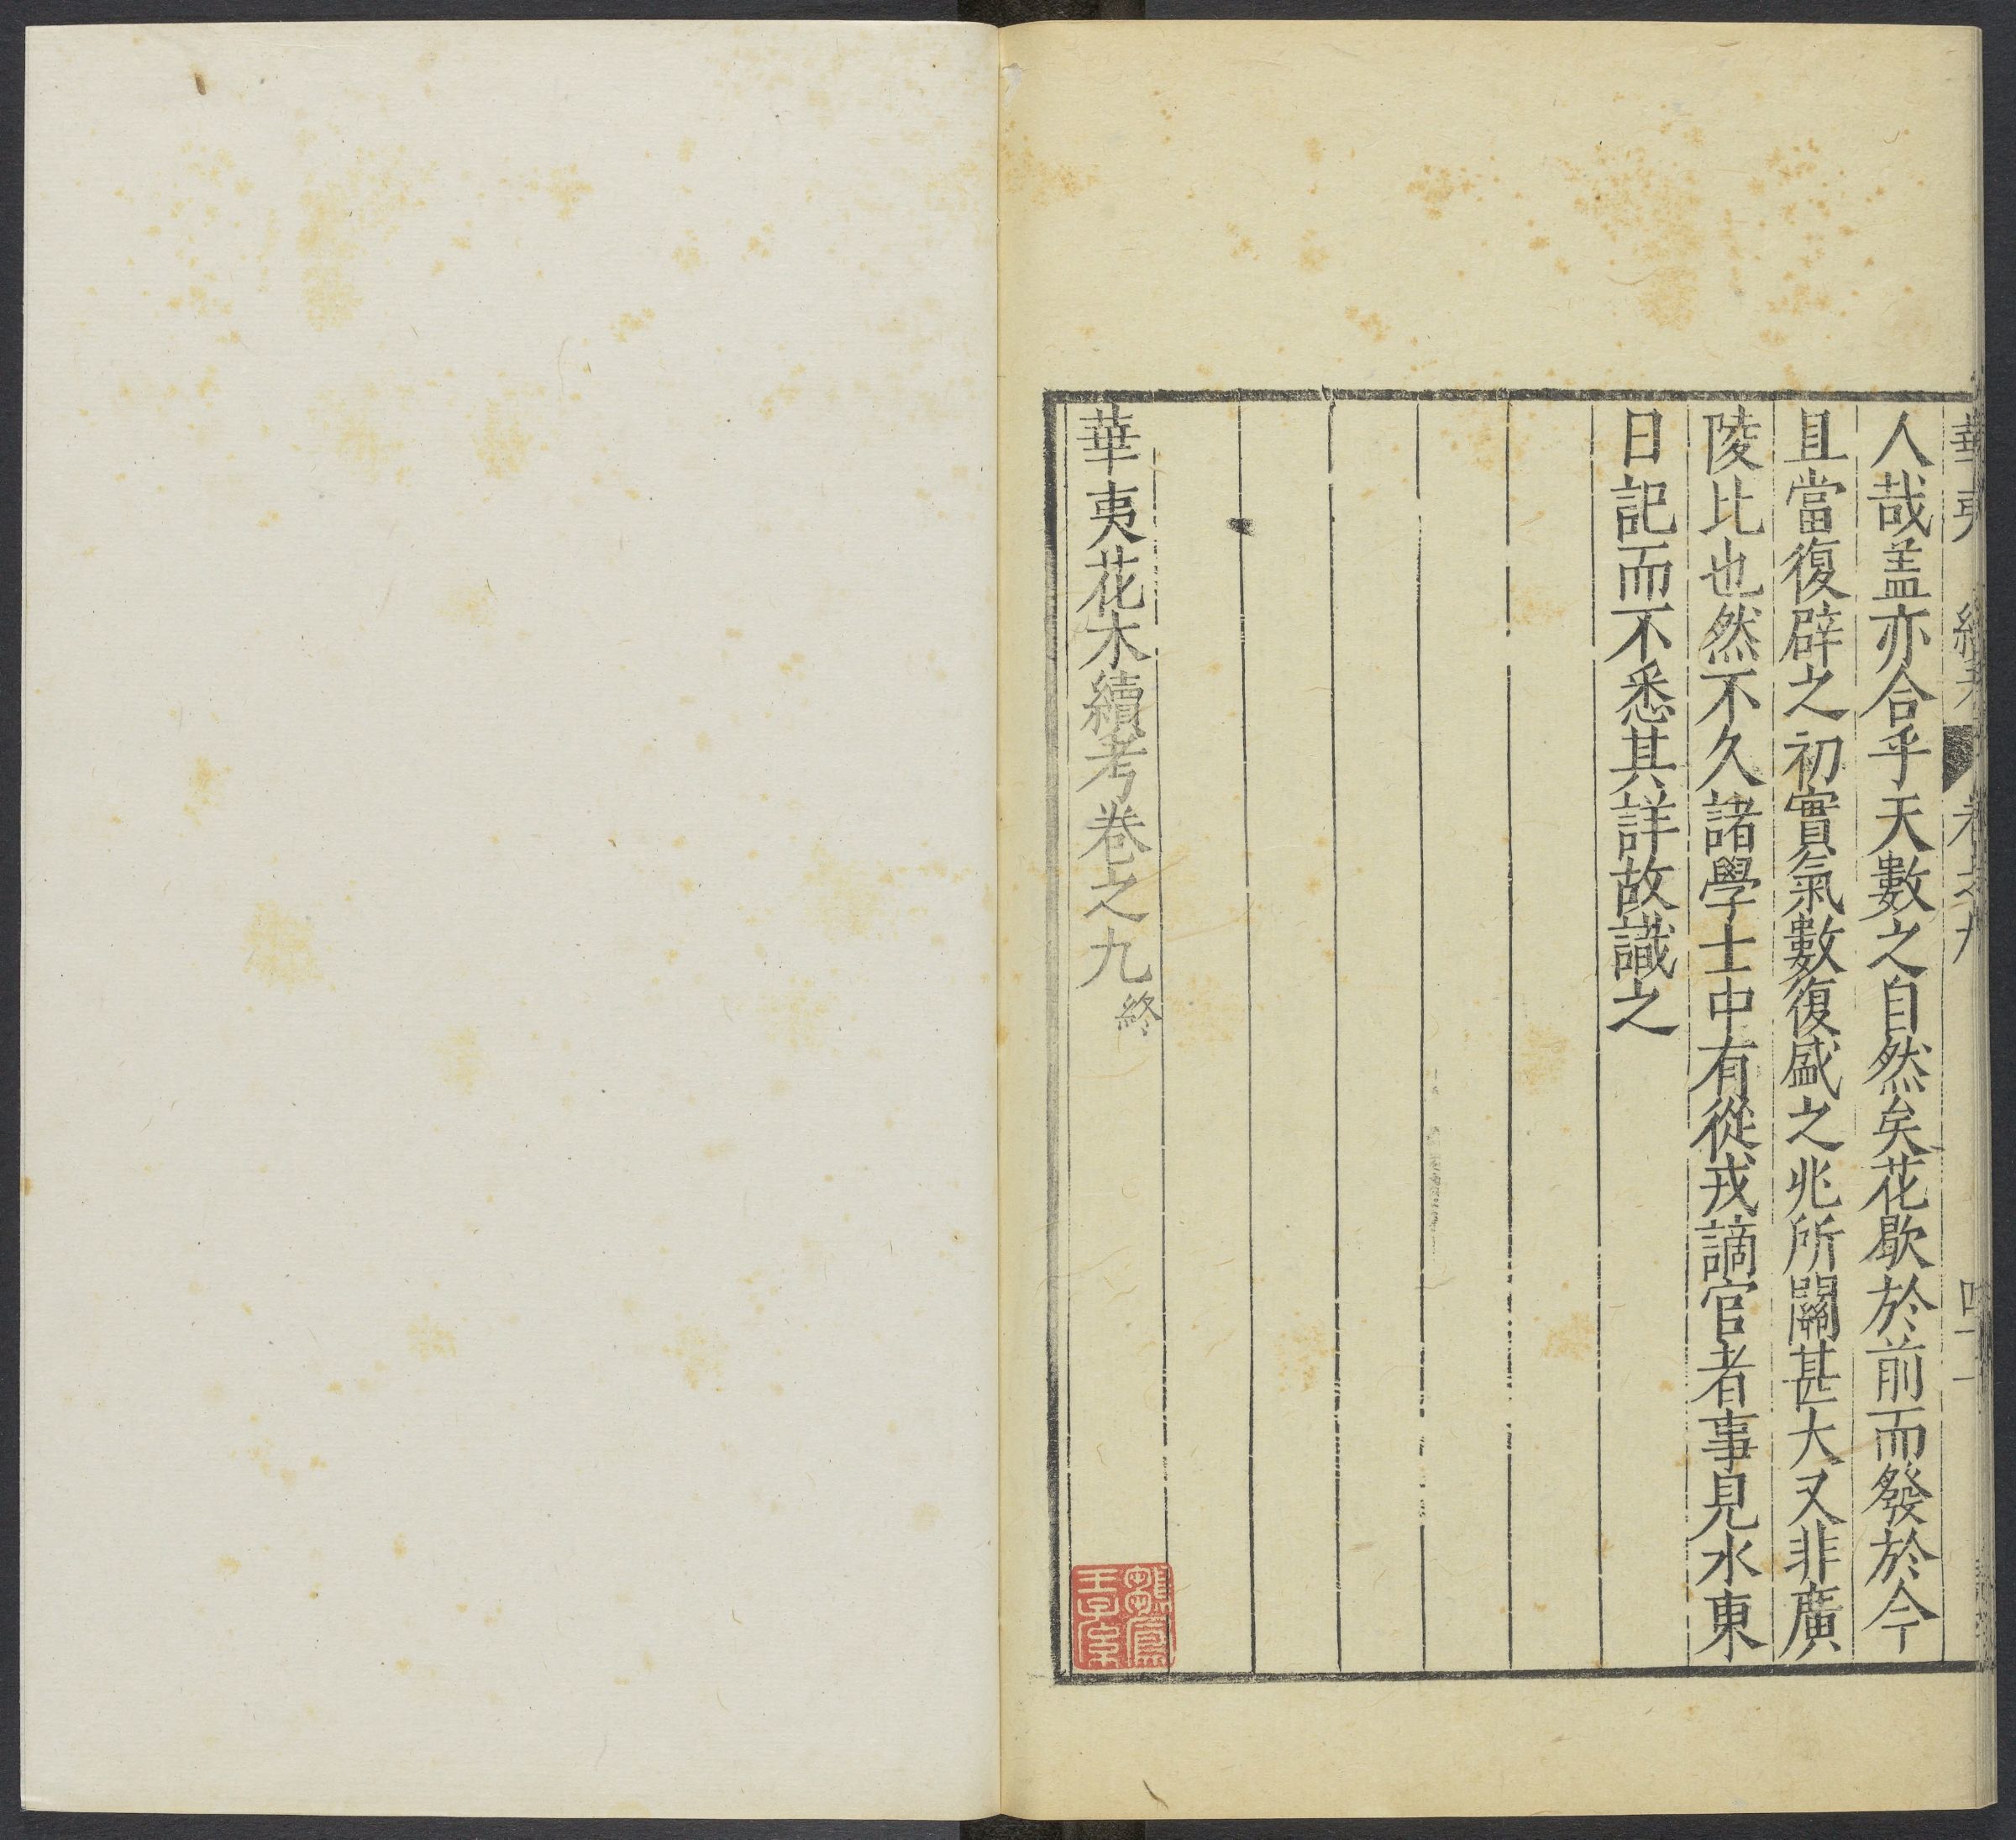 人哉盖亦合乎天數之自然矣花歇於前而發於今
且當復辟之初實氣數復盛之兆所關甚大又非廣
陵比也然不久諸學士中有從戎謫官者事見水東
日記而不悉其詳故識之
華夷花木續考卷之九終